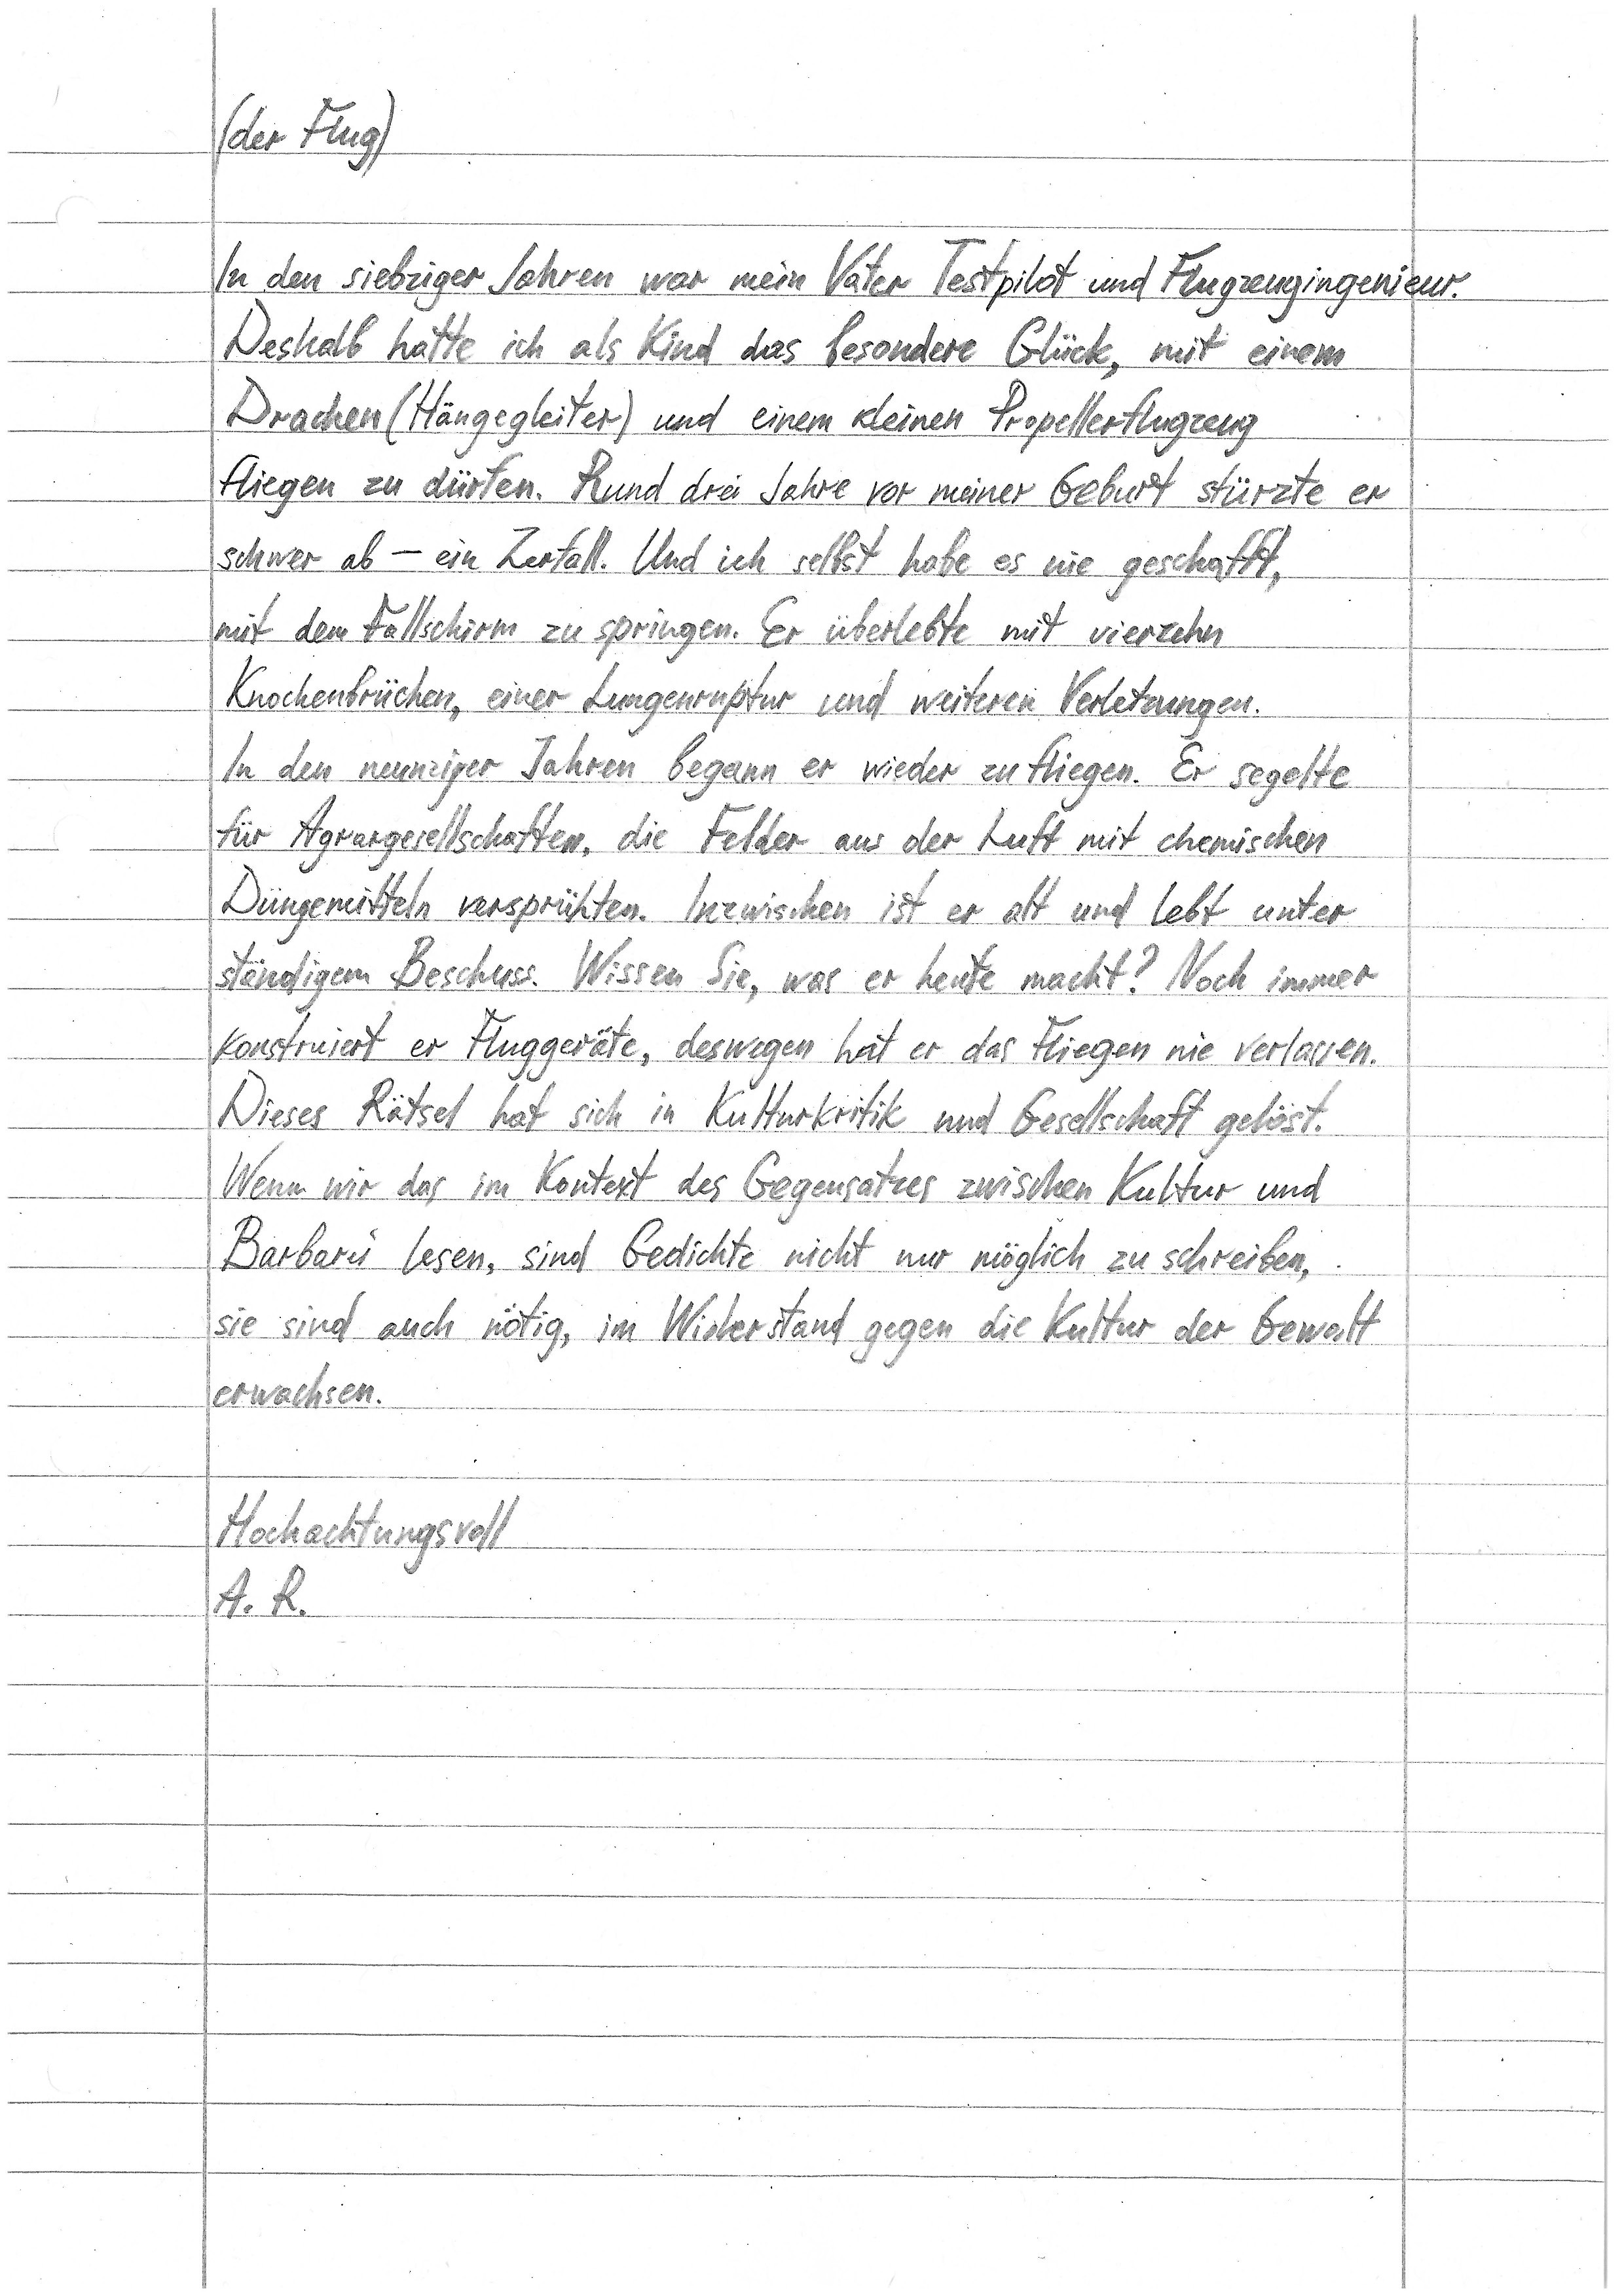 (der Flug)
In den siebziger Jahren war mein Vater Testpilot und Flugzeugingenieur.
Deshalb hatte ich als Kind das besondere Glück, mit einem
Drachen (Hängegleiter) und einem kleinen Propellerflugzeug
fliegen zu dürfen. Rund drei Jahre vor meiner Geburt stürzte er
schwer ab – ein Zerfall. Und ich selbst habe es nie geschafft,
mit dem Fallschirm zu springen. Er überlebte mit vierzehn
Knochenbrüchen, einer Lungenruptur und weiteren Verletzungen.
In den neunziger Jahren begann er wieder zu fliegen. Er segelte
für Agrargesellschaften, die Felder aus der Luft mit chemischen
Düngemitteln versprühten. Inzwischen ist er alt und lebt unter
ständigem Beschuss. Wissen Sie, was er heute macht? Noch immer
konstruiert er Fluggeräte, deswegen hat er das Fliegen nie verlassen.
Dieses Rätsel hat sich in Kulturkritik und Gesellschaft gelöst.
Wenn wir das im Kontext des Gegensatzes zwischen Kultur und
Barbarei lesen, sind Gedichte nicht nur möglich zu schreiben,
sie sind auch nötig, im Widerstand gegen die Kultur der Gewalt
erwachsen.
Hochachtungsvoll
A. R.